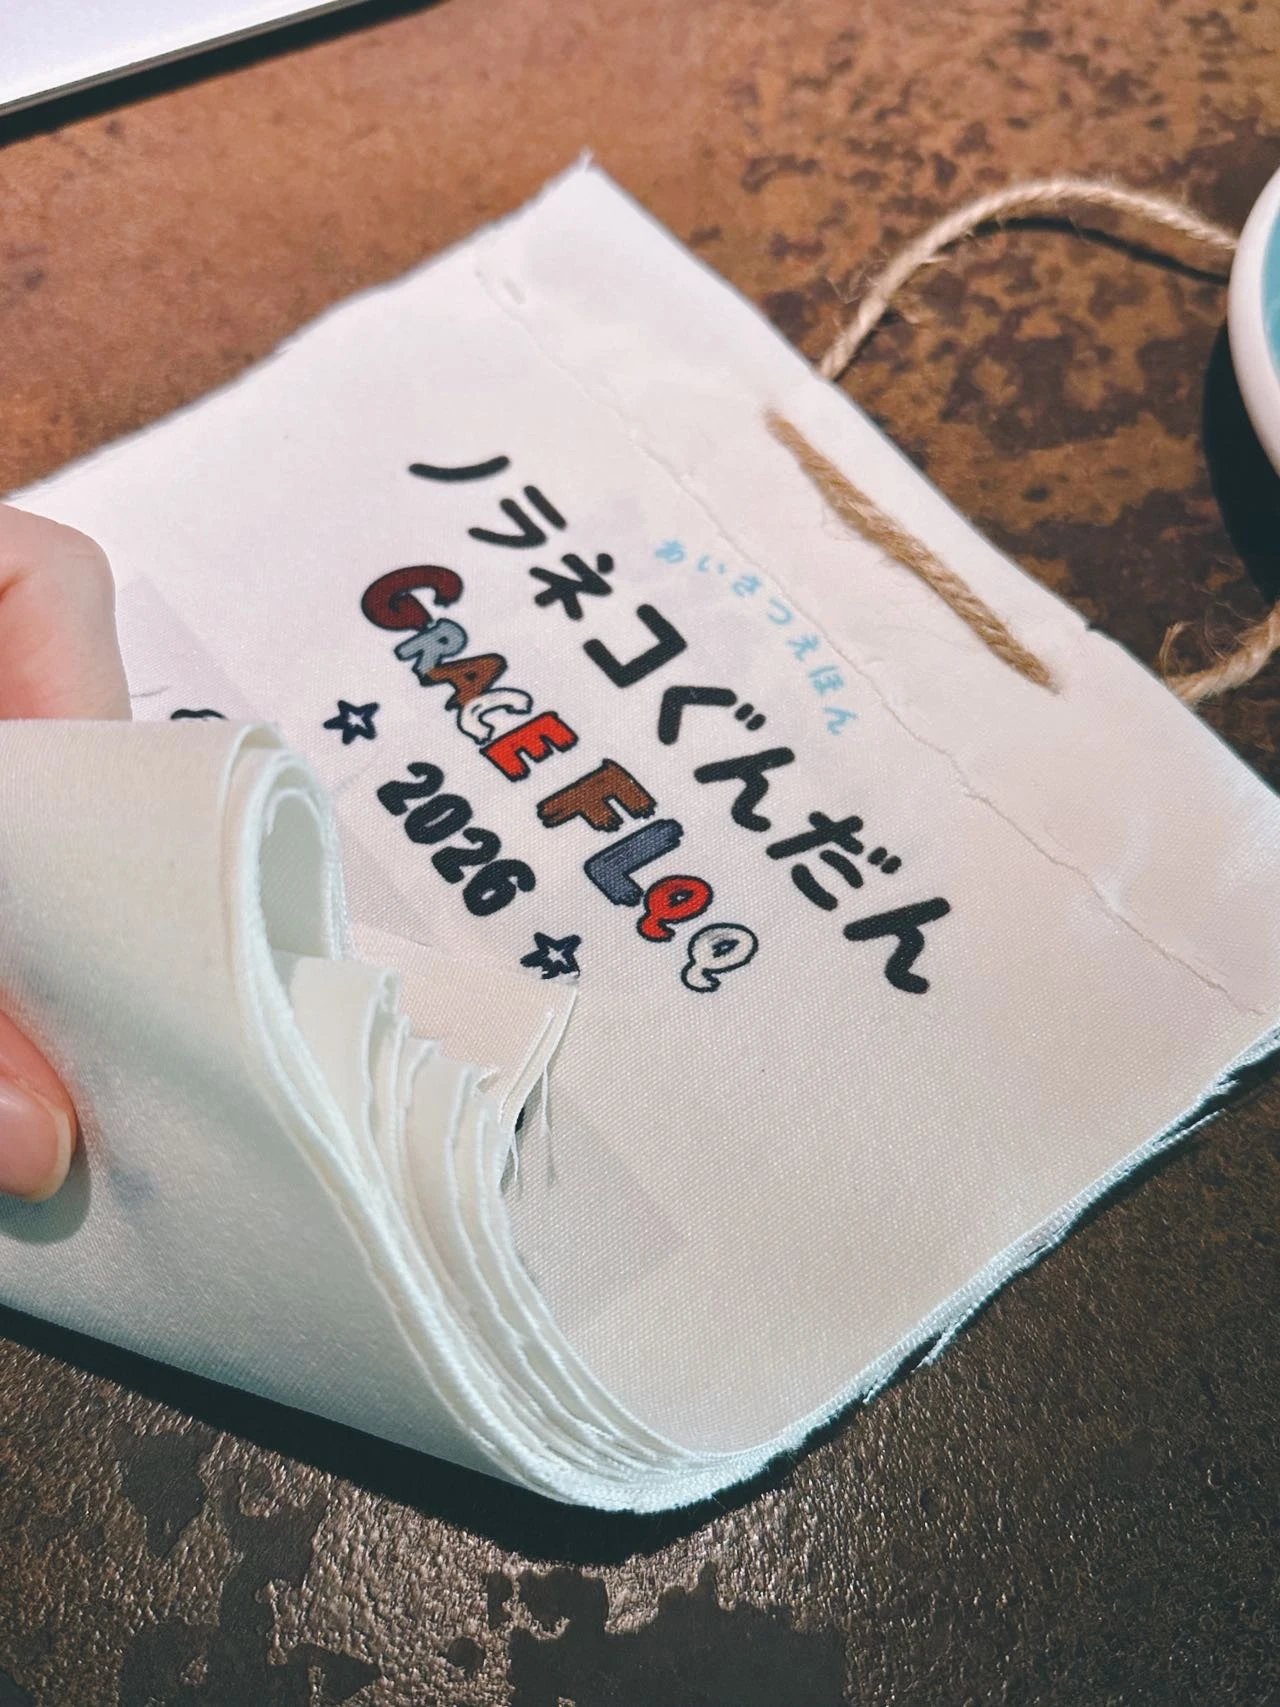 あいさつえほん
ノラネコぐんだん
GRACE FLQQ
2026